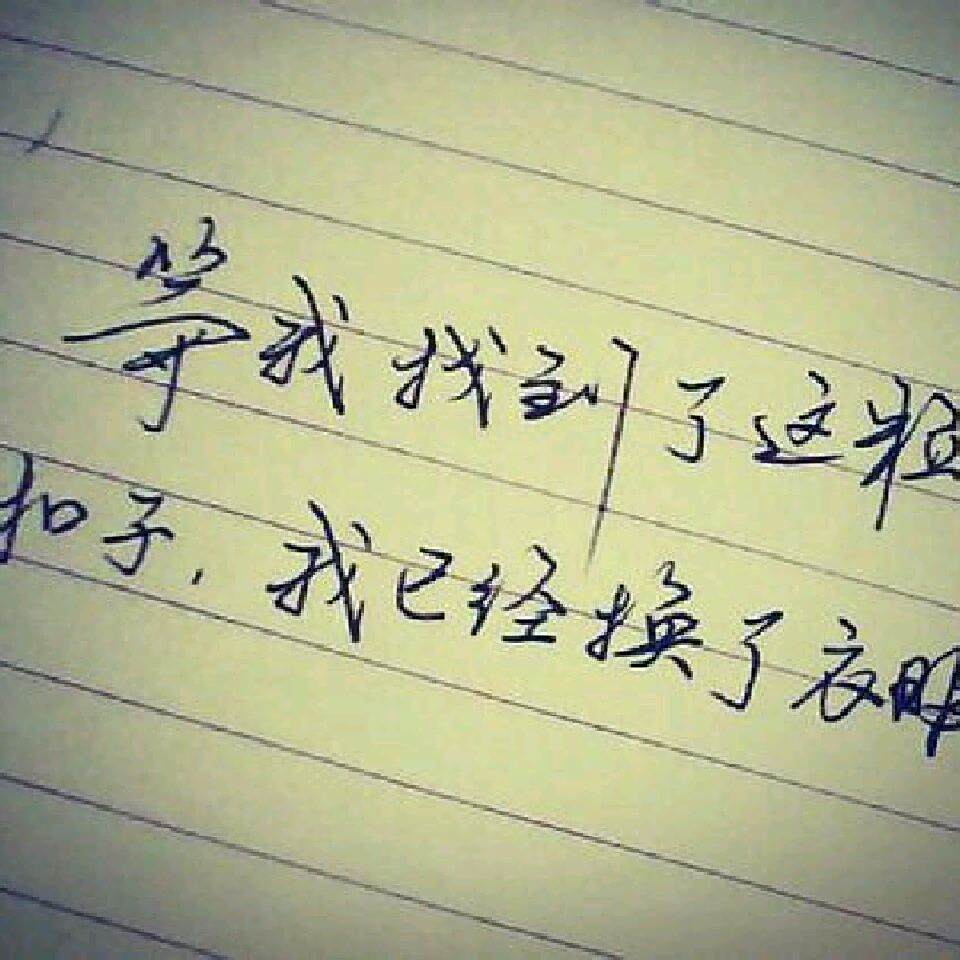 等我找到了这粒
扣子，我已经换了衣服